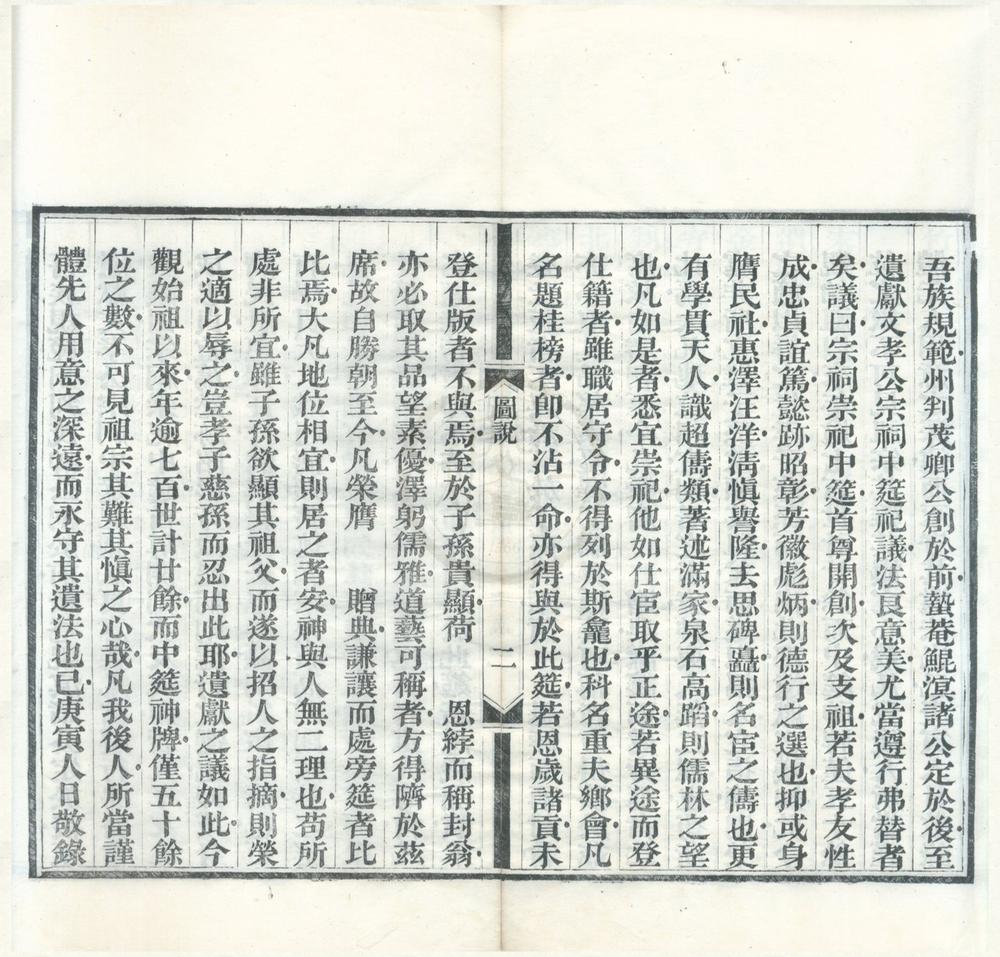 吾族規範州判茂卿公創於前蟄菴鯤溟諸公定於後至
遺獻文孝公宗祠中筵祀議法良意美尤當遵行弗替者
矣議曰宗祠崇祀中筵首尊開創次及支祖若夫孝友性
成忠貞誼篤懿跡昭彰芳徽彪炳則德行之選也抑或身
膺民社惠澤汪洋清愼譽隆去思碑矗則名宦之儔也更
有學貫天人識超儔類著述滿家泉石高蹈則儒林之望
也凡如是者悉宜崇祀他如仕宦取乎正途若異途而登
仕籍者雖職居守令不得列於斯龕也科名重夫鄉會凡
名題桂榜者卽不沾一命亦得與於此筵若恩歲諸貢未
圖說
二
登仕版者不與焉至於子孫貴顯荷　恩綍而稱封翁
亦必取其品望素優澤躬儒雅道藝可稱者方得隮於茲
席故自勝朝至今凡榮膺　贈典謙讓而處旁筵者比
比焉大凡地位相宜則居之者安神與人無二理也苟所
處非所宜雖子孫欲顯其祖父而遂以招人之指摘則榮
之適以辱之豈孝子慈孫而忍出此耶遺獻之議如此今
觀始祖以來年逾七百世計廿餘而中筵神牌僅五十餘
位之數不可見祖宗其難其愼之心哉凡我後人所當謹
體先人用意之深遠而永守其遺法也已庚寅人日敬錄